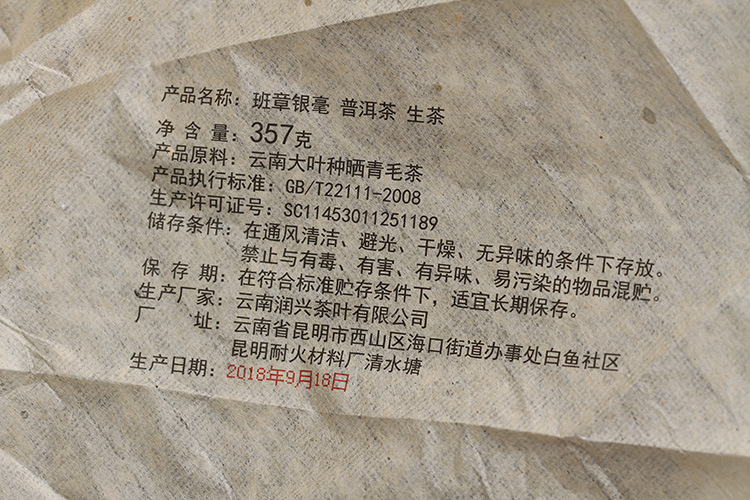 产品名称：班章银毫 普洱茶 生茶
净 含 量：357克
产品原料：云南大叶种晒青毛茶
产品执行标准：GB/T22111-2008
生产许可证号：SC11453011251189
储存条件：在通风清洁、避光、干燥、无异味的条件下存放。
禁止与有毒、有害、有异味、易污染的物品混贮。
保 存 期：在符合标准贮存条件下，适宜长期保存。
生产厂家：云南润兴茶叶有限公司
厂 址：云南省昆明市西山区海口街道办事处白鱼社区
昆明耐火材料厂清水塘
生产日期：2018年9月18日